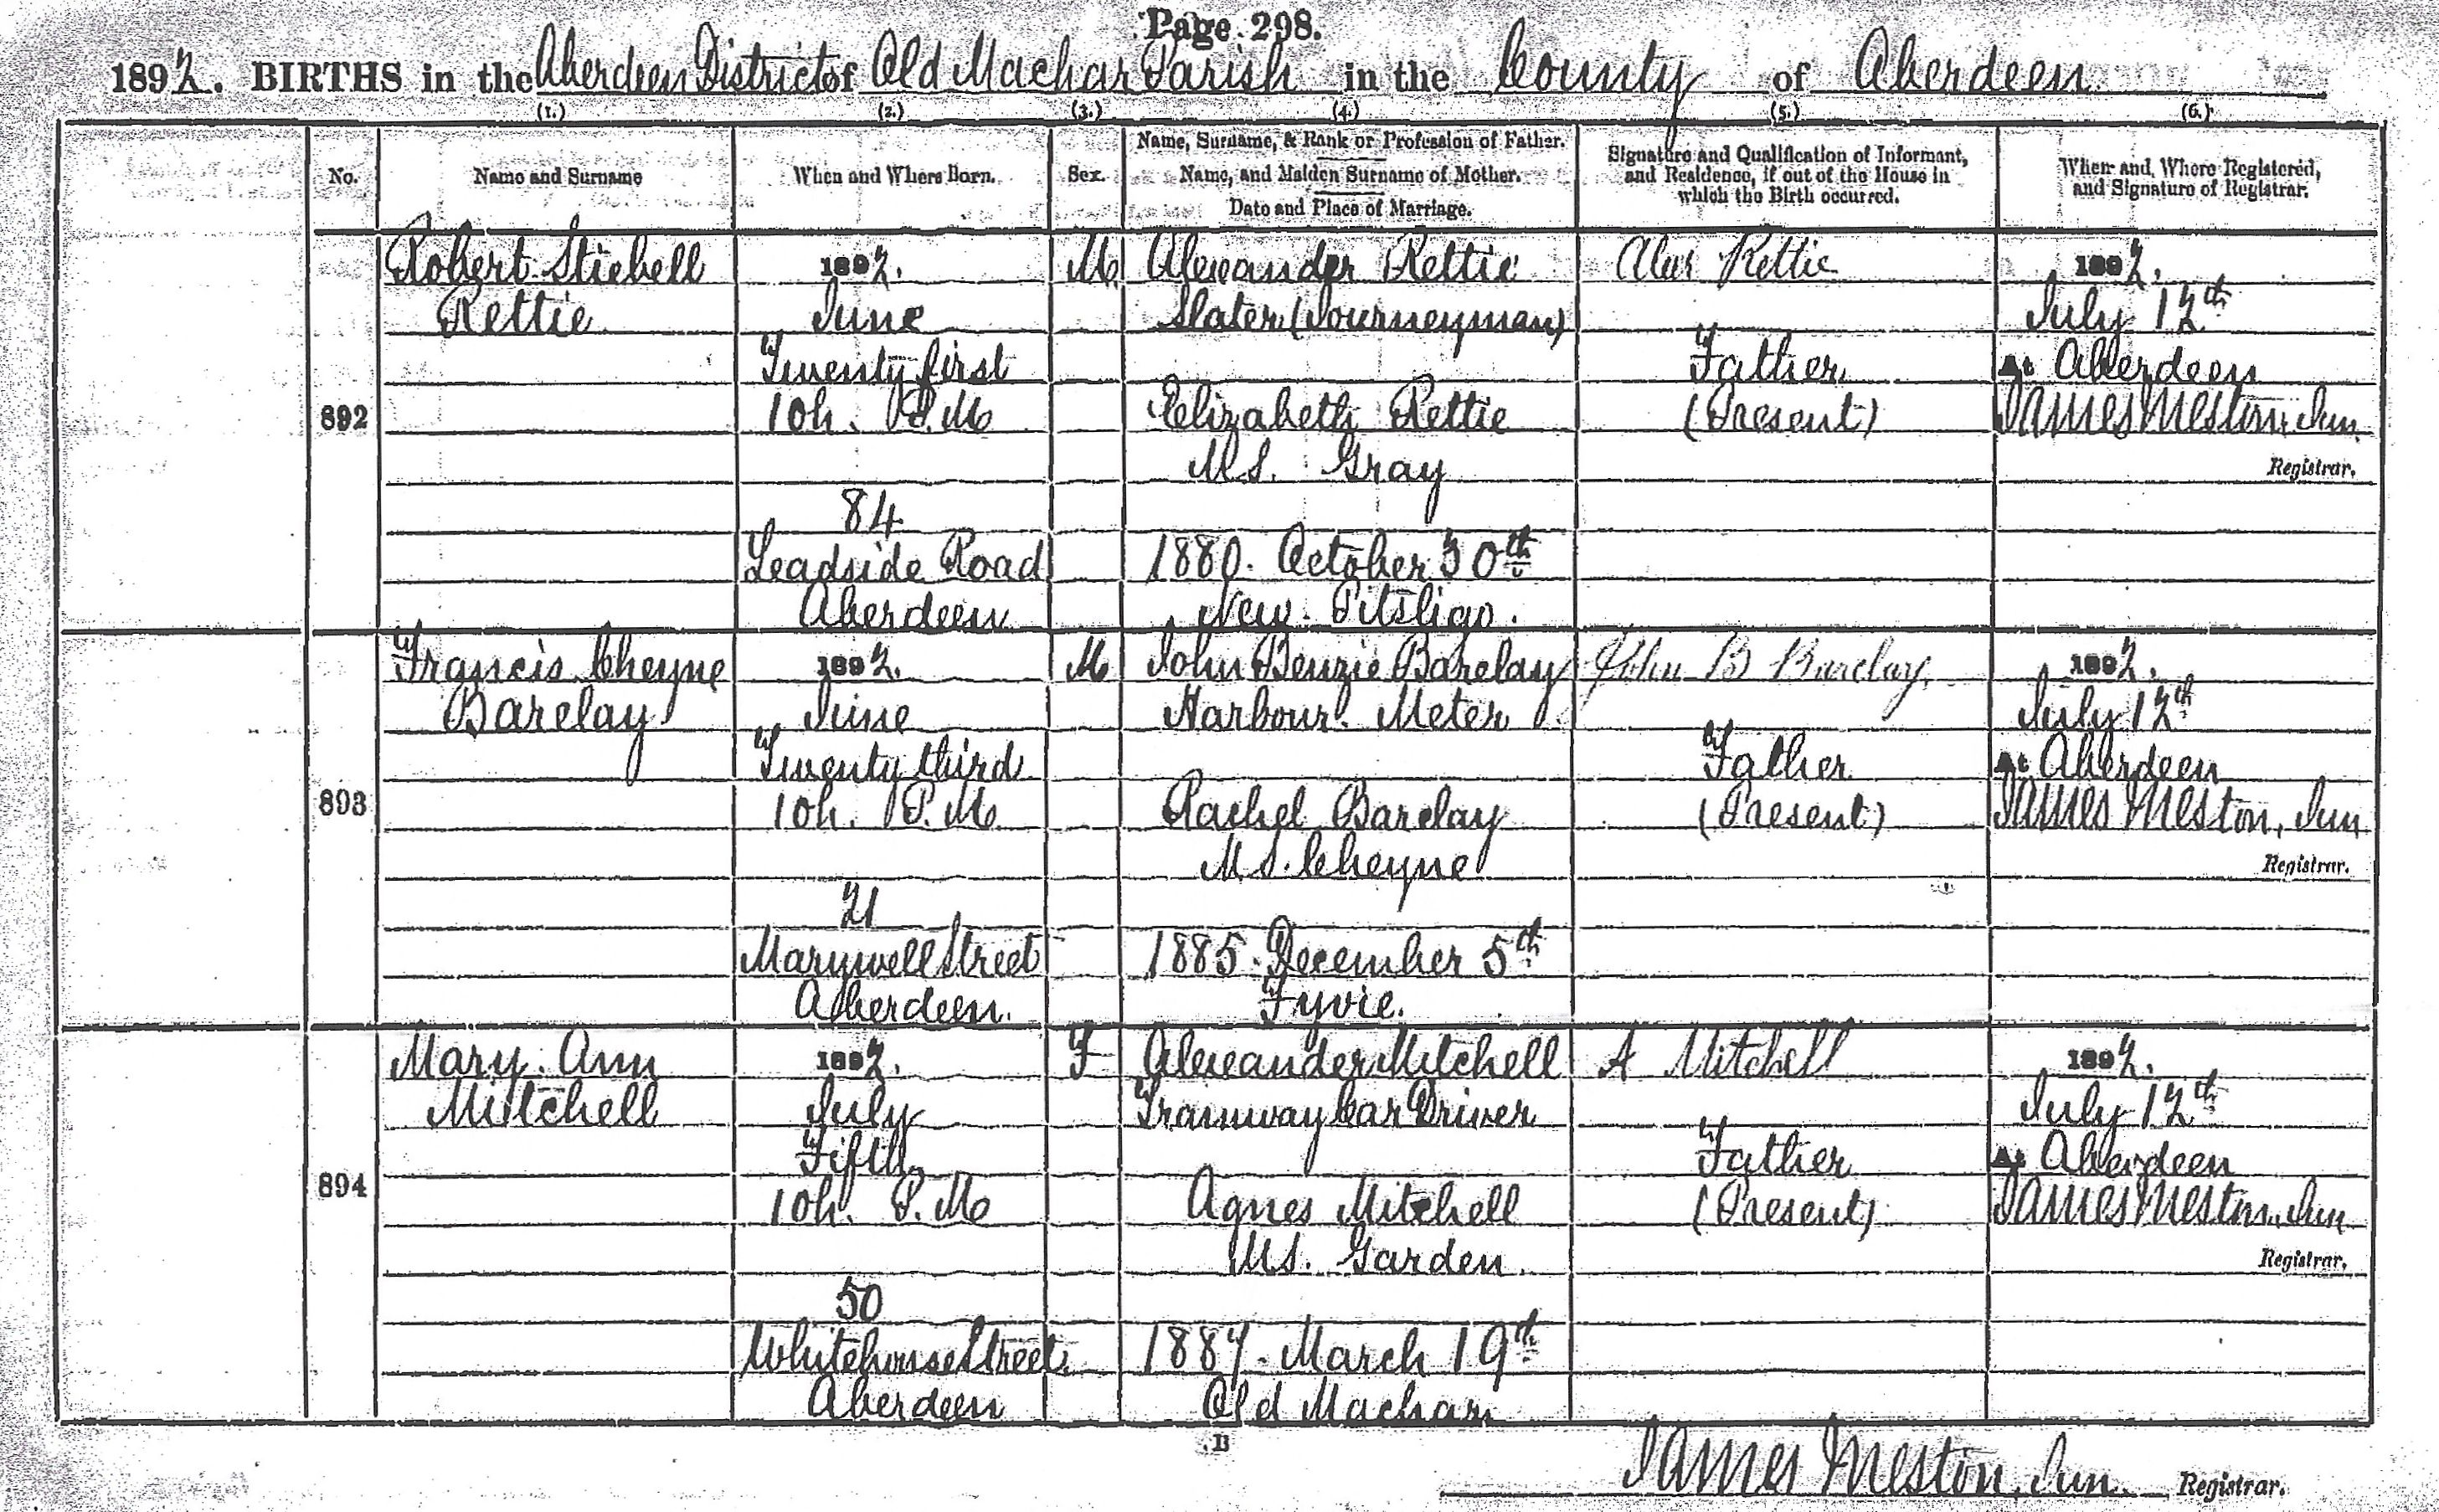 Page 298.
1892. BIRTHS in the Aberdeen District of Old Machar Parish in the County of Aberdeen
(1.) (2.) (3.) (4.) (5.) (6.)
No. Name and Surname When and Where Born. Sex. Name, Surname, & Rank or Profession of Father. Name, and Maiden Surname of Mother. Date and Place of Marriage. Signature and Qualification of Informant, and Residence, if out of the House in which the Birth occurred. When and Where Registered, and Signature of Registrar.
Robert Stiebell 1892. M. Alexander Rettie Alex Rettie 1892.
Rettie June Slater (Journeyman) July 12th
Twenty first Father At Aberdeen
892 10h. P.M. Elizabeth Rettie (Present) James Meston, Jun.
M.S. Gray Registrar.
84
Leadside Road 1880. October 30th
Aberdeen New Pitsligo.
Francis Cheyne 1892. M John Benzie Barclay John B Barclay. 1892.
Barclay June Harbour Meter July 12th
Twenty third Father At Aberdeen
893 10h. P.M. Rachel Barclay (Present) James Meston, Jun
M.S. Cheyne Registrar.
21
Marywell Street 1885. December 5th
Aberdeen. Fyvie.
Mary Ann 1892. F Alexander Mitchell A Mitchell 1892.
Mitchell July Tramway Car Driver July 12th
Fifth Father At Aberdeen
894 10h. P.M. Agnes Mitchell (Present) James Meston, Jun
M.S. Garden. Registrar.
50
Whitehouse Street 1887. March 19th
Aberdeen Old Machar
B
James Meston, Jun. Registrar.